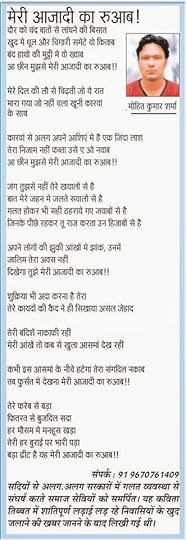 मेरी आजादी का रुआब!
दौर को चंद बातों से लांघने की बिसात
खुद मे धूल और चिंगारी समेटे वो किताब
बंद हाथो की मुट्ठी मे वो ख्वाब
आ छीन मुझसे मेरी आजादी का रुआब!!
मोहित कुमार शर्मा
मेरे दिल की लौ से चिढ़ती जो वे रात
मारा गया जो नहीं चला खूनी कारवां
के साथ
कारवां से अलग अपने आशिएं मे है एक जिंदा लाश
तेरा निजाम नहीं कब्ता उसे ए ओ नवाब
आ छीन मुझसे मेरी आजादी का रुआब!!
जंग तुझसे नहीं तेरे खयालो से है
बात मेरे जहन मे जलते सवालो से है
गलत होकर भी सही ठहराये गए जवाबों से है
जिनके पीछे रहकर तू राज करता उन हिजाबों से है
अपने लोगों की झुकी आंखों मे झांक, उनमें
जालिम तेरा अक्स नहीं
दिखेगा तुझे मेरी आजादी का रुआब!!
शुक्रिया भी अदा करना है तेरा
तेरे कायदों की कैद ने ही सिखाया असल जेहाद
तेरी बंदिशें नाकाफी रहीं
मेरी आंखें तो कब से खुला आसमां देख रहीं
कभी इस आसमां के नीचे हटेगा तेरा संगदिल नकाब
तब फुर्सत मे देखना मेरी आजादी का रुआब!!
तेरे फरेब से बड़ा
फितरत से बुजदिल सदा
हर मौसम मे मनहूस खड़ा
तेरी हर बुराई पर भारी पड़ा
बड़ा ढीट है यह मेरी आजादी का रुआब!!
संपर्क : 91 9670761409
सदियों से अलग.अलग सरकारों में गलत व्यवस्था से
संघर्ष करते समाज सेवियों को समर्पित। यह कविता
तिब्बत में शांतिपूर्ण लड़ाई लड़ रहे निवासियों के खुद
जलाने की खबर जानने के बाद लिखी गई थी।